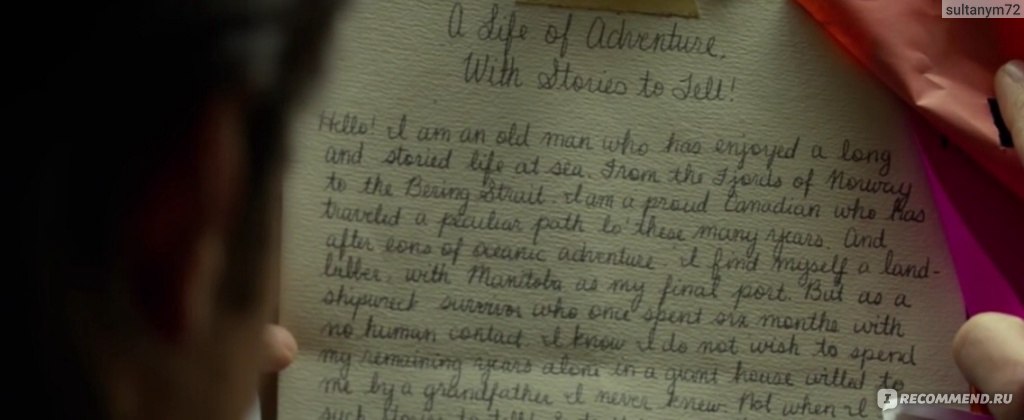 sultanym72
A Life of Adventure,
With Stories to Tell!
Hello! I am an old man who has enjoyed a long
and storied life at sea. From the Fjords of Norway
to the Bering Strait. I am a proud Canadian who has
traveled a peculiar path lo these many years. And
after eons of oceanic adventure, I find myself a land-
lubber, with Manitoba as my final port. But as a
shipwreck survivor who once spent six months with
no human contact I know I do not wish to spend
my remaining years alone in a giant house willed to
me by a grandfather I never knew. Not when I
such stories to tell!
I RECOMMEND.RU